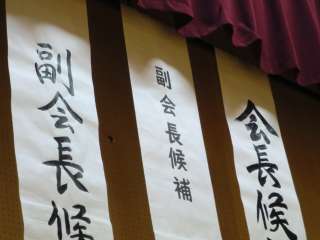 副会長候
副会長候補
会長候